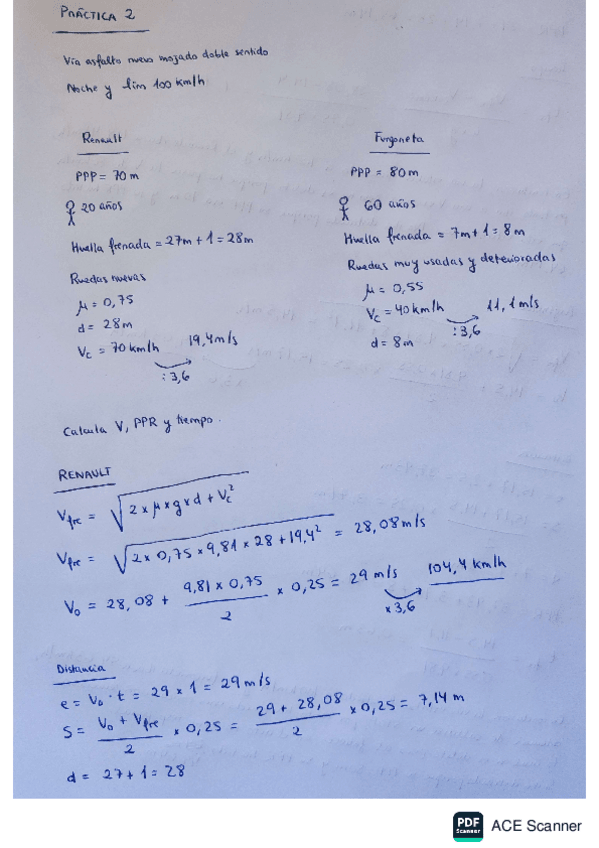 PRÁCTICA 2
Vía asfalto nuevo mojado doble sentido
Noche y lím 100 km/h
Renault
PPP = 70 m
20 años
Huella frenada = 27m + 1 = 28m
Ruedas nuevas
μ = 0,75
d = 28m
Vc = 70 km/h 19,4 m/s
: 3,6
Furgoneta
PPP = 80m
60 años
Huella frenada = 7m + 1 = 8m
Ruedas muy usadas y deterioradas
μ = 0,55
Vc = 40 km/h 11,1 m/s
: 3,6
d = 8m
Calcula V, PPR y tiempo.
RENAULT
Vfre = √2 x μ x g x d + Vc²
Vfre = √2 x 0,75 x 9,81 x 28 + 19,4² = 28,08 m/s
V₀ = 28,08 + 9,81 x 0,75 / 2 x 0,25 = 29 m/s 104,4 km/h
x 3,6
Distancia
e = V₀ · t = 29 x 1 = 29 m/s
S = V₀ + Vfre / 2 x 0,25 = 29 + 28,08 / 2 x 0,25 = 7,14 m
d = 27 + 1 = 28
PDF
Scanner
ACE Scanner